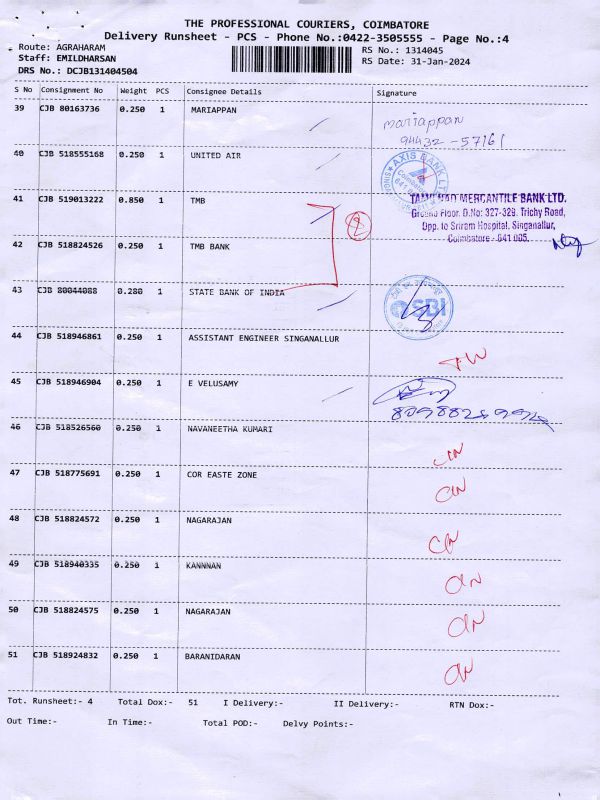 THE PROFESSIONAL COURIERS, COIMBATORE
Delivery Runsheet - PCS - Phone No.:0422-3505555 - Page No.:4
Route: AGRAHARAM
Staff: EMILDHARSAN
DRS No.: DCJB131404504
RS No.: 1314045
RS Date: 31-Jan-2024
S No Consignment No Weight PCS Consignee Details Signature
39 CJB 80163736 0.250 1 MARIAPPAN
mariappan
94432-57161
40 CJB 518555168 0.250 1 UNITED AIR
AXIS BANK LTD
Coimbatore
41 CJB 519013222 0.850 1 TMB
TAMILNAD MERCANTILE BANK LTD.
Ground Floor, D.No: 327-329, Trichy Road,
Opp. to Sriram Hospital, Singanallur,
Coimbatore - 641 005.
2
42 CJB 518824526 0.250 1 TMB BANK
43 CJB 80044088 0.280 1 STATE BANK OF INDIA
SBI
44 CJB 518946861 0.250 1 ASSISTANT ENGINEER SINGANALLUR
45 CJB 518946904 0.250 1 E VELUSAMY
46 CJB 518526560 0.250 1 NAVANEETHA KUMARI
47 CJB 518775691 0.250 1 COR EASTE ZONE
48 CJB 518824572 0.250 1 NAGARAJAN
49 CJB 518940335 0.250 1 KANNNAN
50 CJB 518824575 0.250 1 NAGARAJAN
51 CJB 518924832 0.250 1 BARANIDARAN
Tot. Runsheet:- 4 Total Dox:- 51 I Delivery:- II Delivery:- RTN Dox:-
Out Time:- In Time:- Total POD:- Delvy Points:-